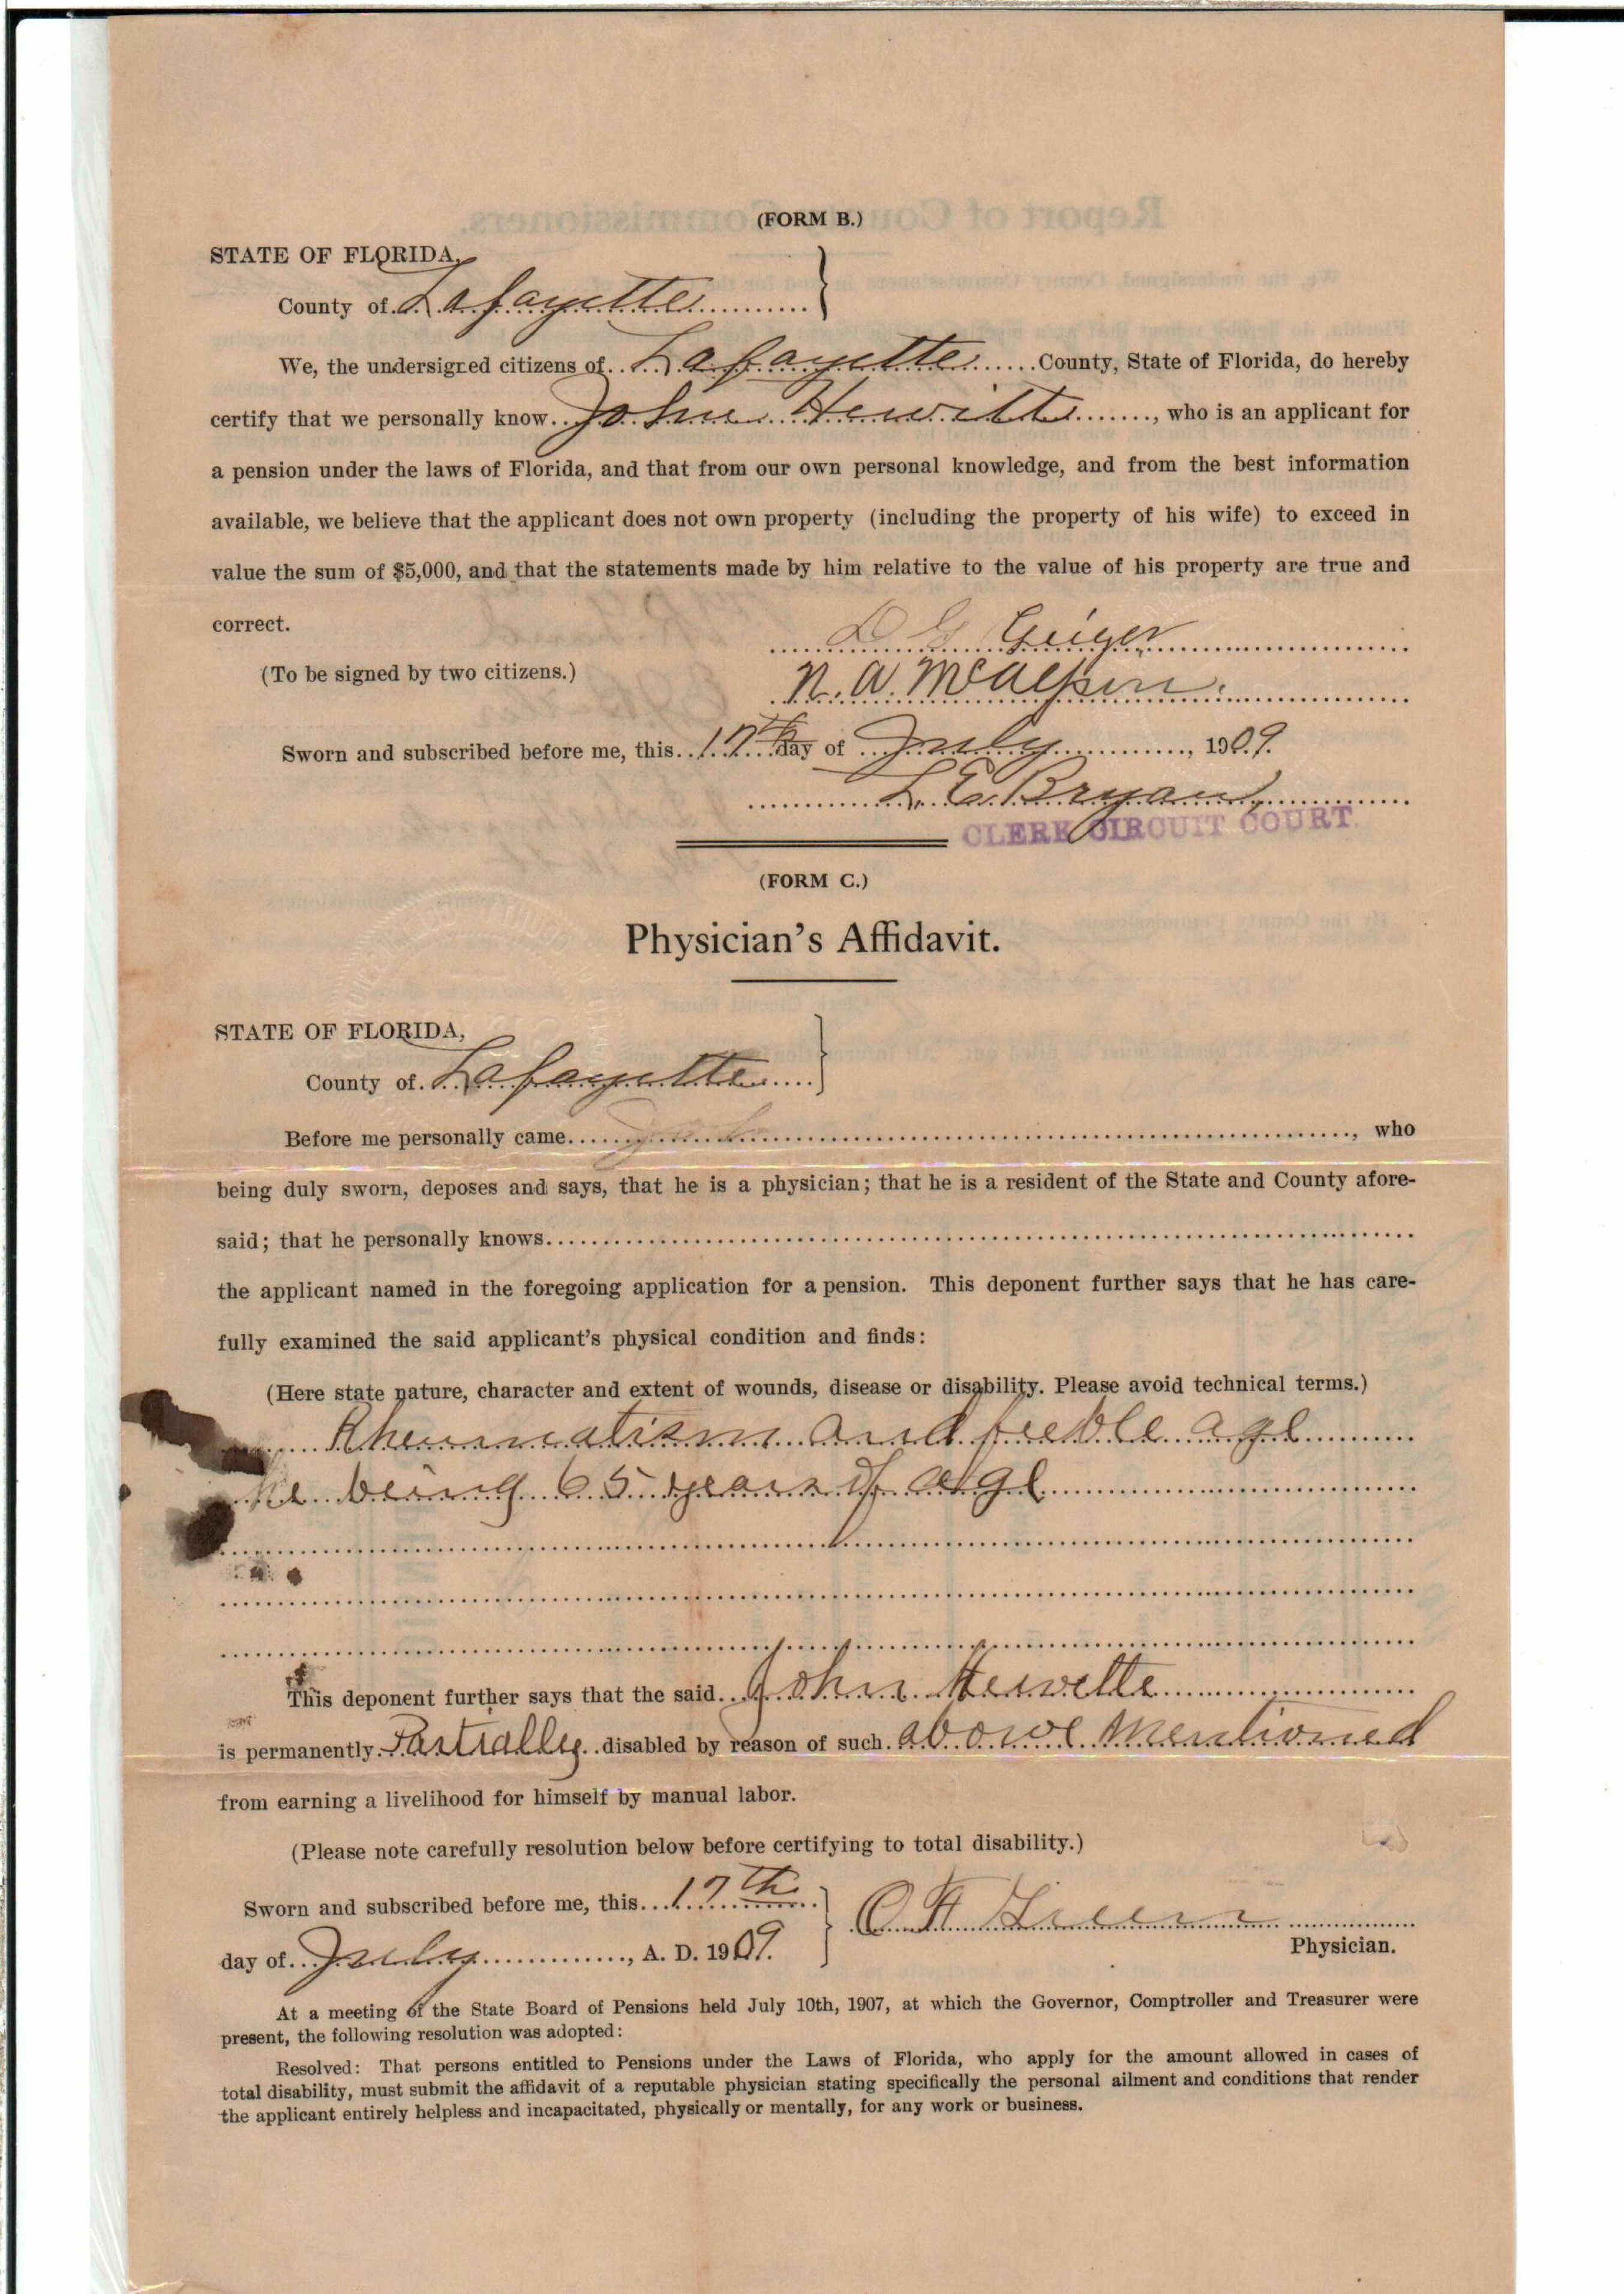 (FORM B.)
STATE OF FLORIDA,
County of Lafayette
We, the undersigned citizens of Lafayette County, State of Florida, do hereby
certify that we personally know John Hewitt, who is an applicant for
a pension under the laws of Florida, and that from our own personal knowledge, and from the best information
available, we believe that the applicant does not own property (including the property of his wife) to exceed in
value the sum of $5,000, and that the statements made by him relative to the value of his property are true and
correct.
D G Geiger
(To be signed by two citizens.)
N. A. McAlpin.
Sworn and subscribed before me, this 17th day of July, 1909.
L. E. Bryan,
CLERK CIRCUIT COURT.
(FORM C.)
Physician's Affidavit.
STATE OF FLORIDA,
County of Lafayette
Before me personally came, who
being duly sworn, deposes and says, that he is a physician; that he is a resident of the State and County afore-
said; that he personally knows
the applicant named in the foregoing application for a pension. This deponent further says that he has care-
fully examined the said applicant's physical condition and finds:
(Here state nature, character and extent of wounds, disease or disability. Please avoid technical terms.)
Rheumatism and feeble age
he being 65 years of age
This deponent further says that the said John Hewette
is permanently Partially disabled by reason of such above Mentioned
from earning a livelihood for himself by manual labor.
(Please note carefully resolution below before certifying to total disability.)
Sworn and subscribed before me, this 17th
day of July, A. D. 1909.
Physician.
At a meeting of the State Board of Pensions held July 10th, 1907, at which the Governor, Comptroller and Treasurer were
present, the following resolution was adopted:
Resolved: That persons entitled to Pensions under the Laws of Florida, who apply for the amount allowed in cases of
total disability, must submit the affidavit of a reputable physician stating specifically the personal ailment and conditions that render
the applicant entirely helpless and incapacitated, physically or mentally, for any work or business.